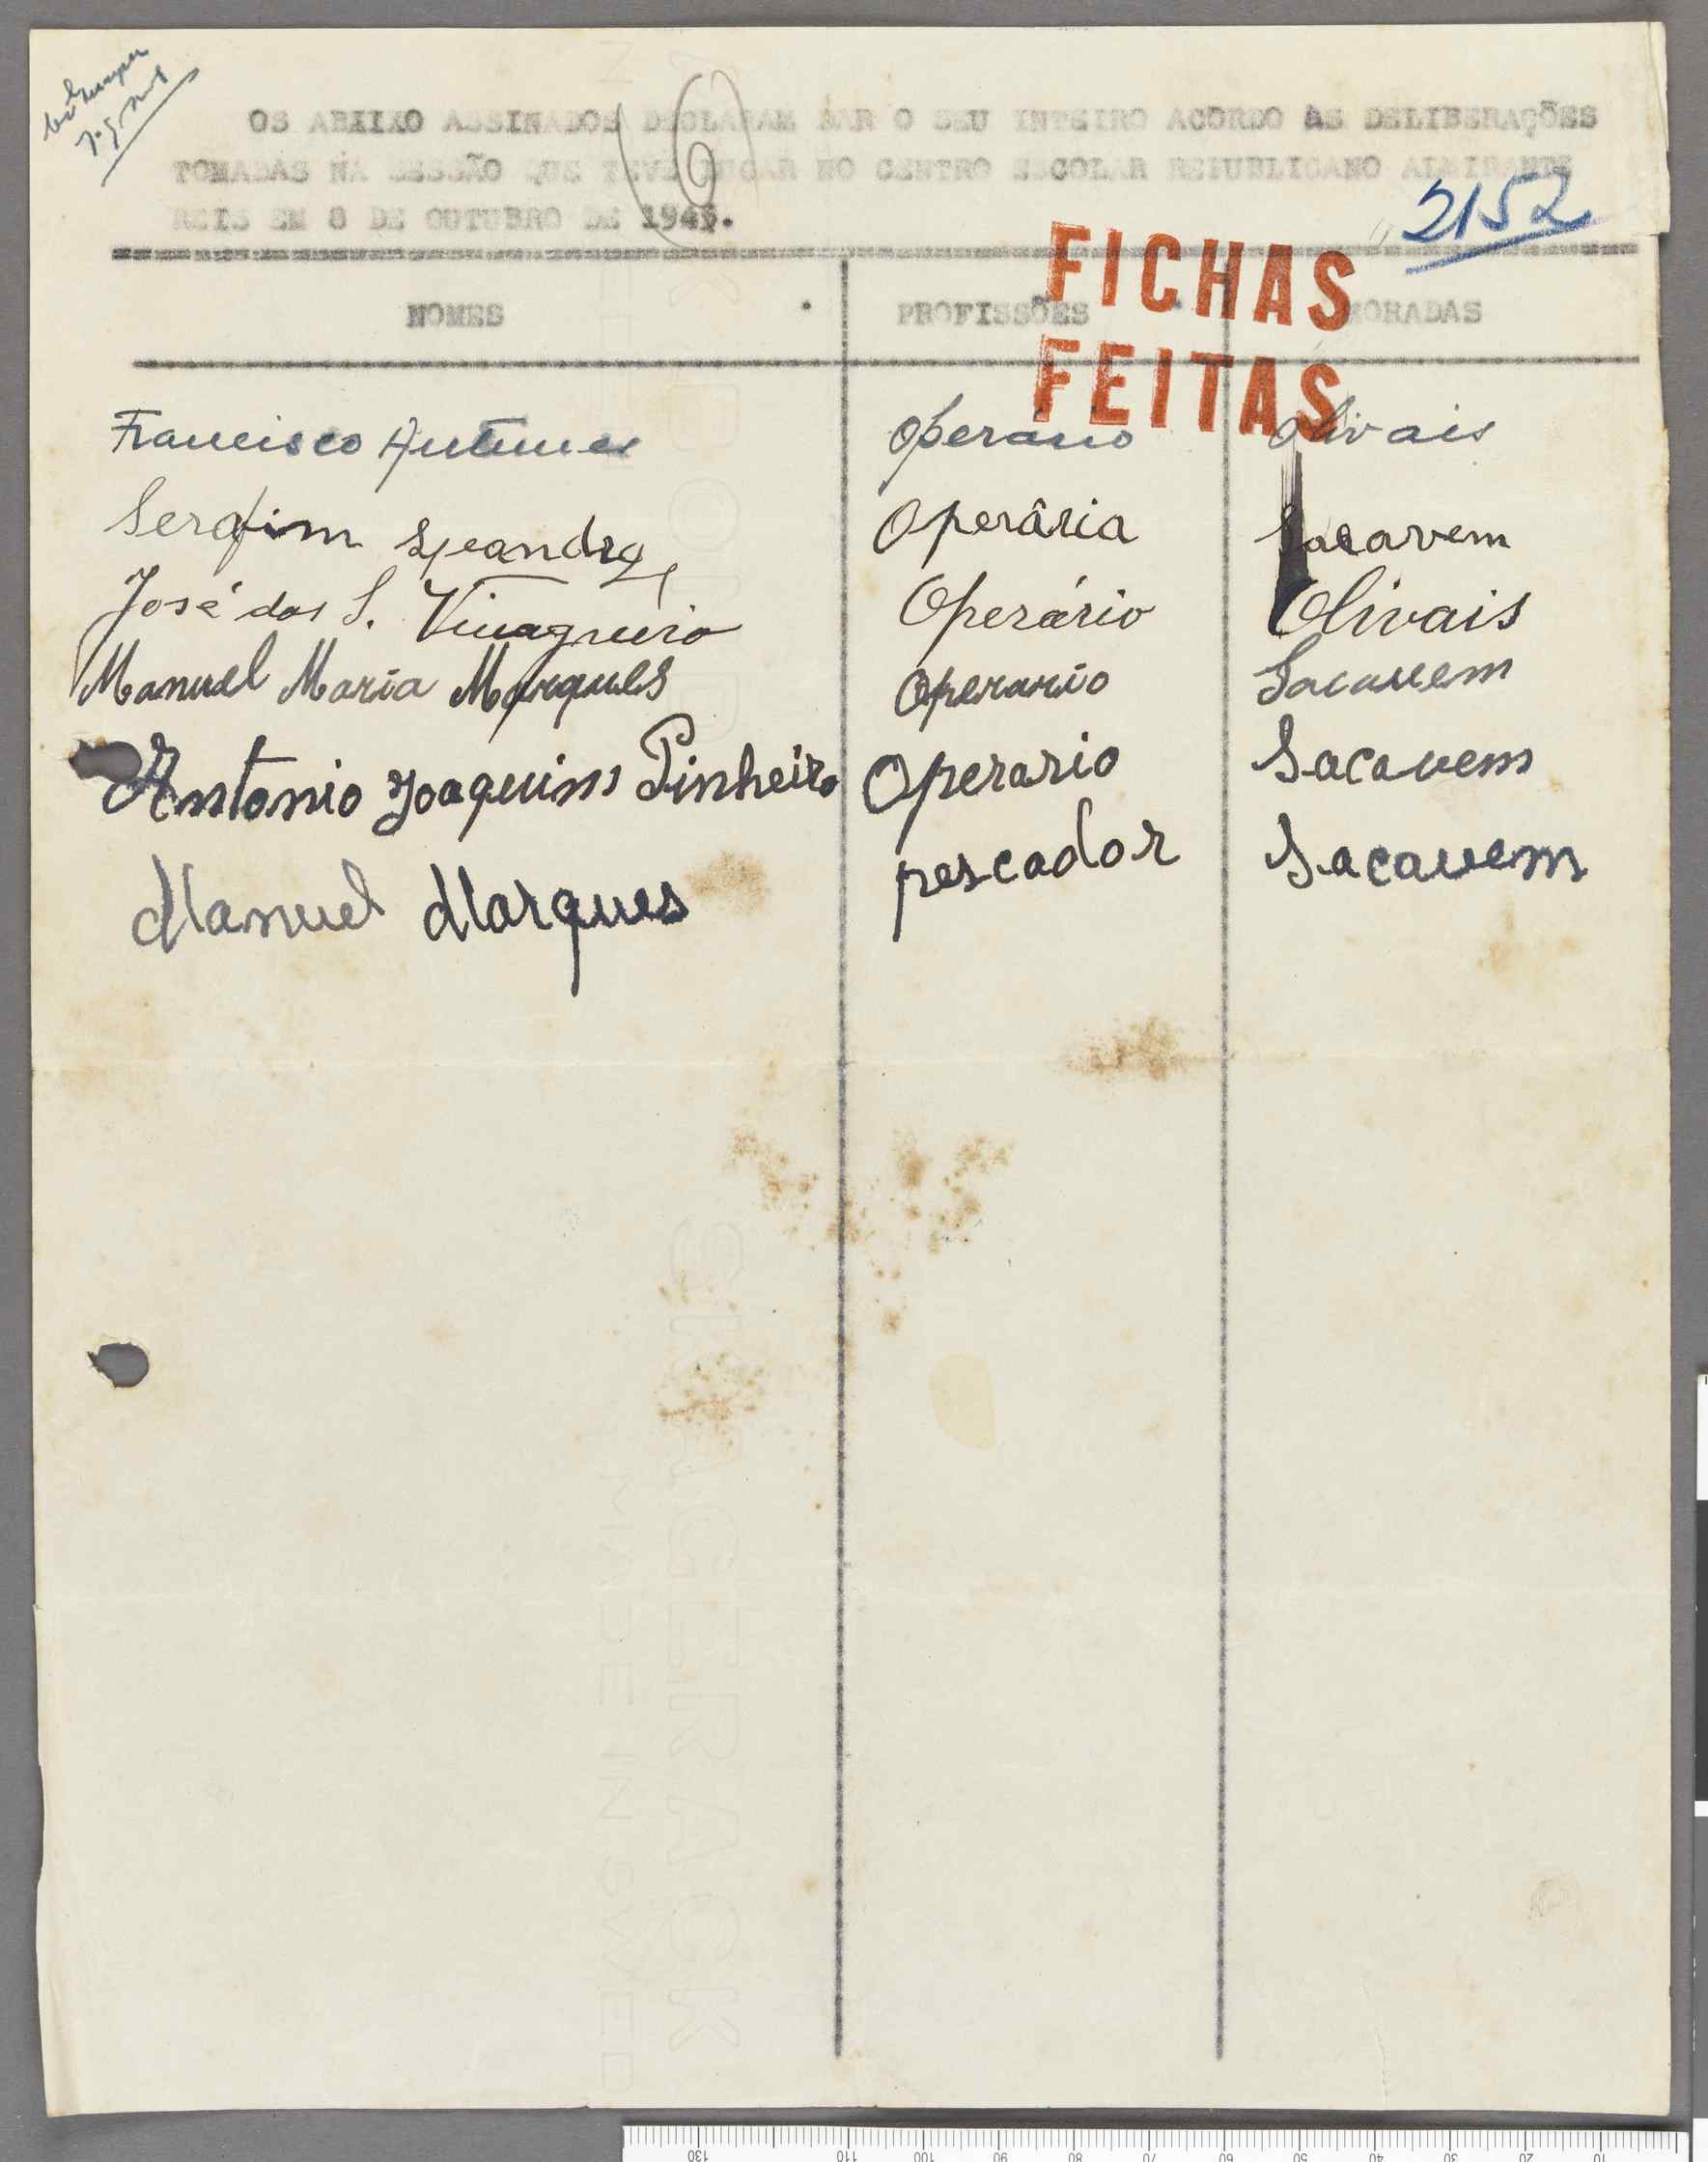 OS ABAIXO ASSINADOS DECLARAM DAR O SEU INTEIRO ACÔRDO ÀS DELIBERAÇÕES
TOMADAS NA SESSÃO QUE TEVE LUGAR NO CENTRO ESCOLAR REPUBLICANO ALMIRANTE
REIS EM 8 DE OUTUBRO DE 1945.
(6)
2152
FICHAS
FEITAS
NOMES PROFISSÕES MORADAS
Francisco Antunes Operário Olivais
Serafim Operária Sacavem
José dos S. Vinagreiro Operário Olivais
Manuel Maria Marques Operario Sacavem
Antonio Joaquim Pinheiro Operario Sacavem
Manuel Marques pescador Sacavem
SKAGERRACK
MADE IN SWEDEN
130 110 100 90 80 70 60 50 40 30 20 10